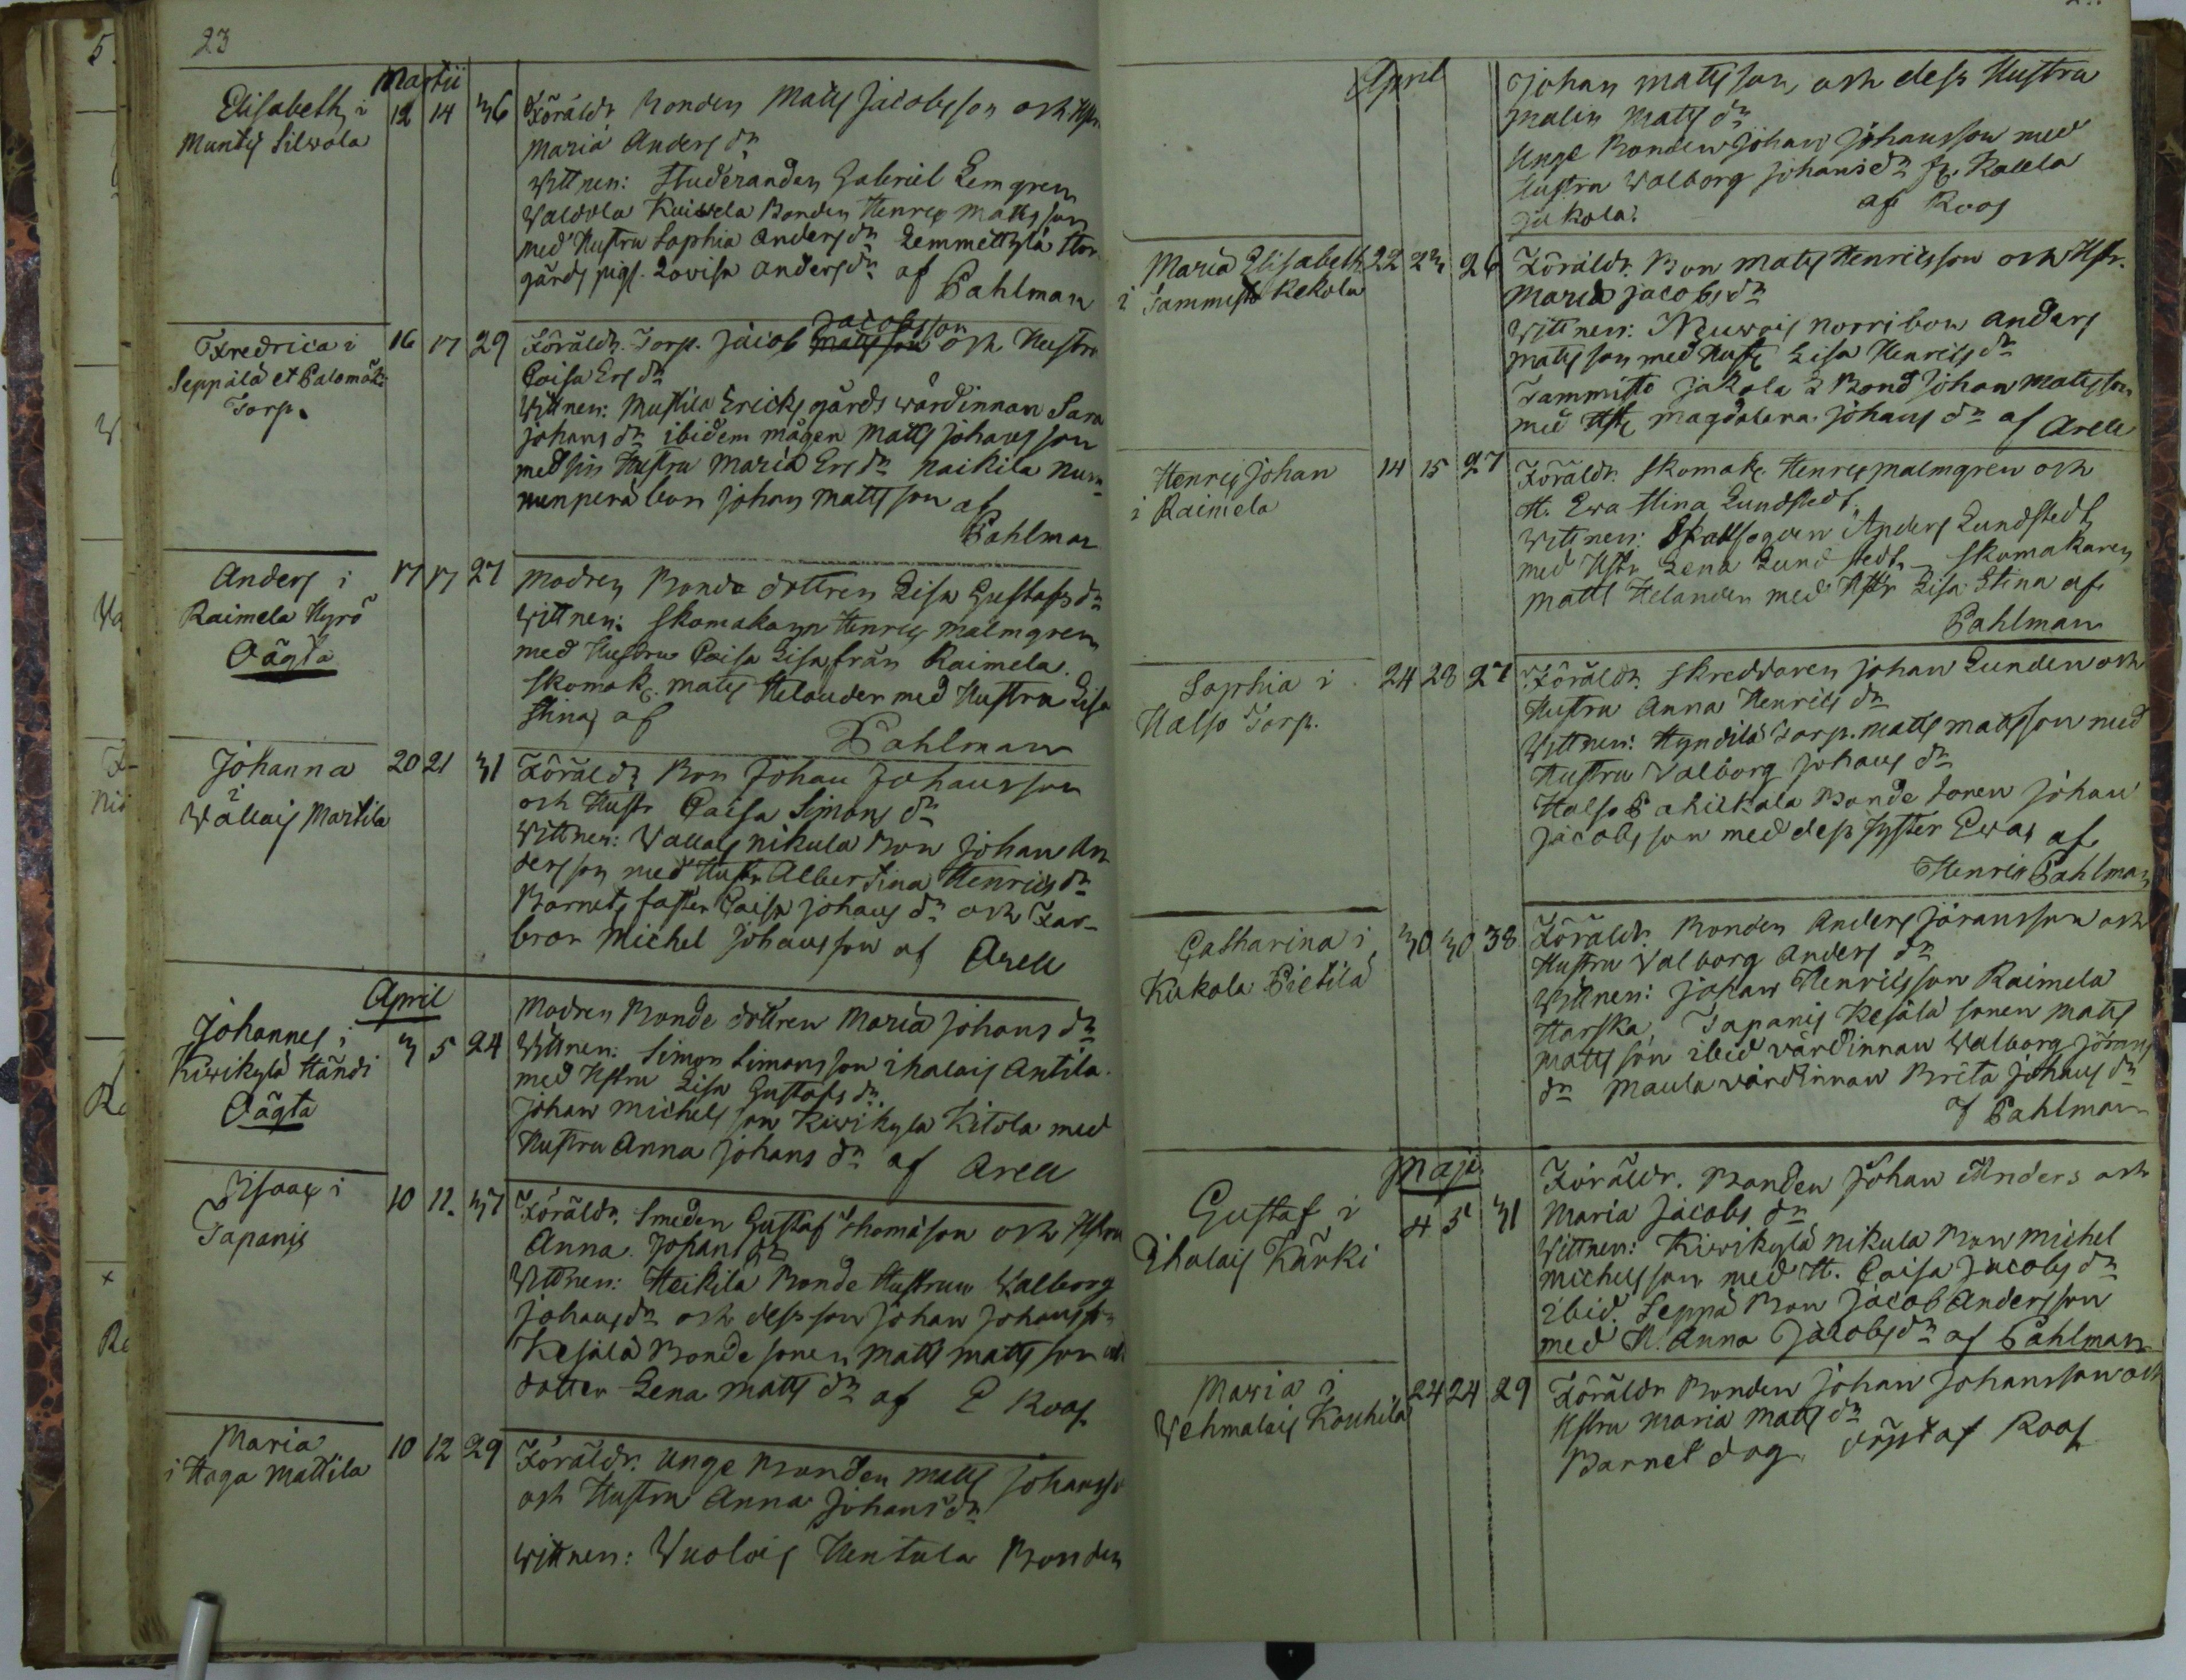 23
Martii
Elisabeth i
Muntis Silvola
12 14 36
Föräldr Bonden Matts Jacobsson och Hstr.
Maria Anders dr
Wittnen: Studeranden Gabriel Lemgren
Waldola Kuivela Bonden Henric Mattsson
med Hustru Sophia Anders dr Lemmettylä Stor
gårds pig. Lovisa Anders dr af
Pahlman
Fredrica i
Seppälä et Palomäki
Torp.
16 17 29
Jacobsson
Föräldr. Torp. Jacob Mattsson och Hustr
Caisa Ers dr
Wittnen: Mustila Ericks gårds wärdinnan Sara
Johans dr ibidem mågen Matts Johansson
med sin Hustru Maria Ers dr Naikila Num
menperä bon Johan Mattsson af
Pahlman
Anders i
Raimela Hyrö
Oägta
17 17 27
Modren Bonde dottren Lisa Gustafs dr
Wittnen: Skomakaren Henric Malmgren
med Hustru Caisa Lisa från Raimela.
Skomak. Matts Helander med Hustru Lisa
Stina af
Pahlman
Johanna
i
Wallais Martila
20 21 31
Föräldr Bon Johan Johansson
och Hustr Caisa Simons dr
Wittnen: Vallais Nikula Bon Johan An
dersson med Hustr Albertina Henrics dr
Barnets faster Caisa Johans dr och Far-
bror Michel Johansson af Arell
April
Johannes i
Kivikylä Händi
Oägta
3 5 24
Modren Bonde dottren Maria Johans dr
Wittnen: Simon Simonsson ihalais Antila.
med Hstru Lisa Gustafs dr.
Johan Michelsson Kivikylä Kitola med
Hustru Anna Johans dr af Arell
Isaac i
Tapanis
10 11. 37
Föräldr. Smeden Gustaf Thomasson och Hstru
Anna. Johans dr
Wittnen: Heikila Bonde Hustrun Walborg
Johans dr och dess son Johan Johansson
Kesälä Bonde sonen Matts Mattsson och
dotter Lena Matts dr af C Roos
Maria
i Haga Mattila
10 12 29
Föräldr. Unge Bonden Matts Johansso
och Hustru Anna Johans dr
Wittnen: Vuolois Hentula Bonden
April
Johan Mattsson, och dess Hustru
Malin Matts dr
Unge Bonden Johan Johansson med
Hustru Walborg Johans dr fr. Kallela
Jakola.
af Roos
Maria Elisabeth
i Tammisto Kekola
22 23 26
Föräldr. Bon Matts Henricsson och Hstr.
Maria Jacobs dr
Wittnen: Neuvois Norri bon Anders
Mattsson med Hustr Lisa Henrics dr
Tammisto Jakola Bond Johan Mattsson
med Hstr Magdalena Johans dr af Arell
Henric Johan
i Raimela
14 15 27
Föräldr. Skomak. Henric Malmgren och
H. Ewa Stina Lundstedt
Wittnen: Anders Lundstedt
med Hstr Lena Lundstedt, Skomakaren
Matts Helander med Hstr Lisa Stina af
Pahlman
Sophia i
Halso Torp.
24 28 27
Föräldr. Skreddaren Johan Lunden och
Hustru Anna Henrics dr
Wittnen: Hyndilä Torp. Matts Mattsson med
Hustru Valborg Johans dr
Halso Pahikkala Bonde sonen Johan
Jacobsson med dess Syster Ewa af
Henric Pahlman
Catharina i
Kukola Pietilä
30 30 38
Föräldr. Bonden Anders Jöransson och
Hustru Valborg Anders dr
Wittnen: Johan Henricsson Raimela
Harska, Tapanis Kesälä sonen Matts
Mattsson ibid värdinnan Walborg Jörans
dr Maula värdinnan Brita Johans dr
f Pahlman
Maji
Gustaf i
Ihalais Kärki
4 5 31
Föräldr. Bonden Johan Anders och
Maria Jacobs dr
Wittnen: Kivikylä Nikula Bon Michel
Michelsson med H. Caisa Jacobs dr
ibid. Seppä Bon Jacob Andersson
med H. Anna Jacobs dr af Pahlman
Maria i
Vehmalais Kouhila
24 24 29
Föräldr Bonden Johan Johansson och
Hstru Maria Matts dr
Barnet dog döpt af Roos